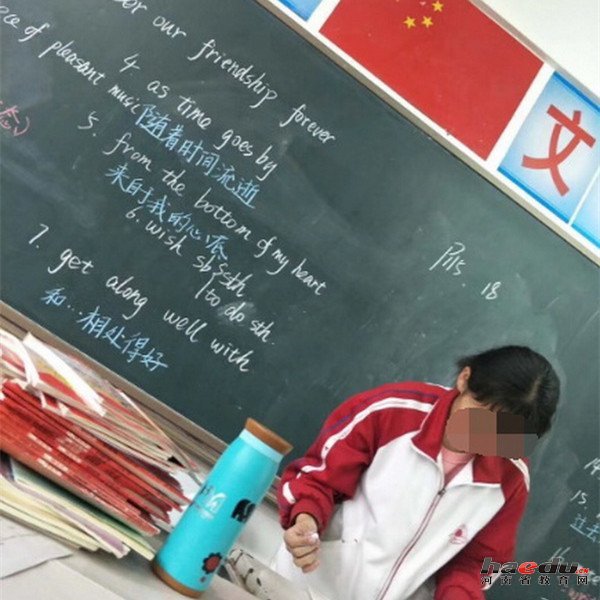 or our friendship forever
ece of pleasant music
4. as time goes by
随着时间流逝
5. from the bottom of my heart
来自我的心底
6. wish sb sth
to do sth.
7. get along well with
和...相处得好
P115. 18
文
15
过去
haedu.cn
河南省教育网